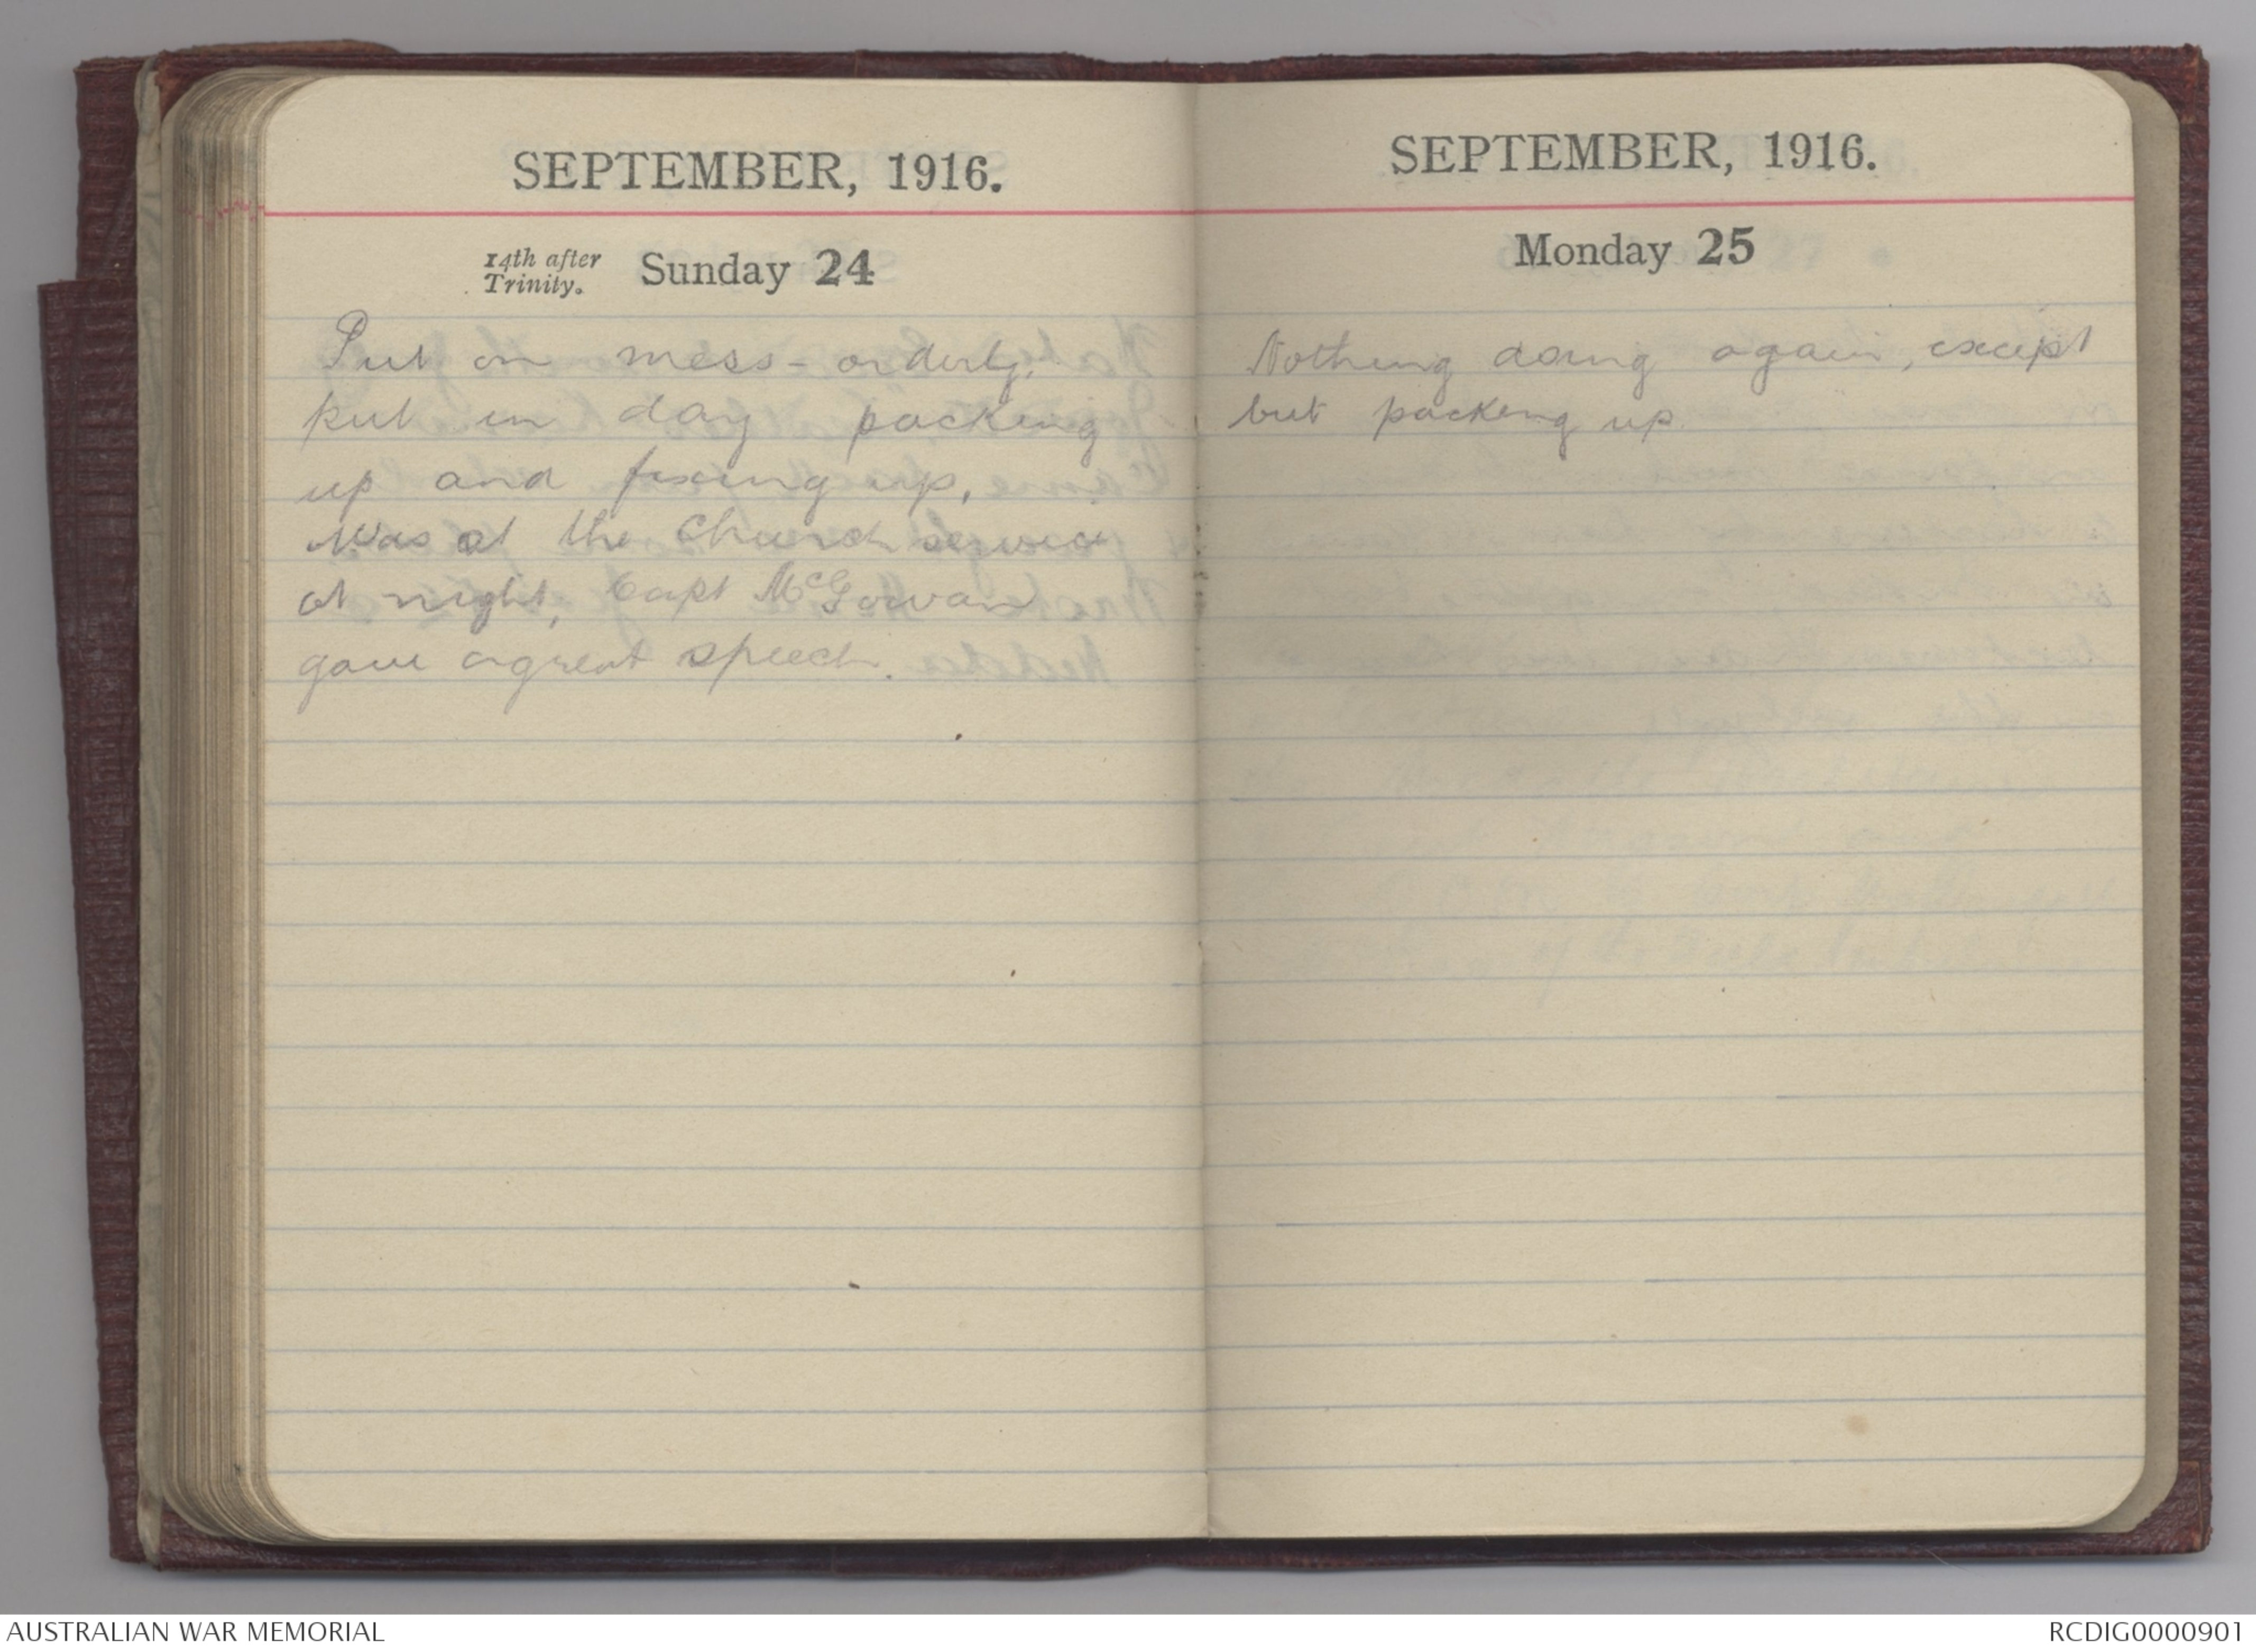 SEPTEMBER, 1916.
14th after
Trinity.
Sunday 24
Put on mess-orderly,
put in day packing
up and fixing up,
Was at the Church service
at night, Capt McGowan
gave a great speech.
SEPTEMBER, 1916.
Monday 25
Nothing doing again, except
but packing up
AUSTRALIAN WAR MEMORIAL
RCDIG0000901